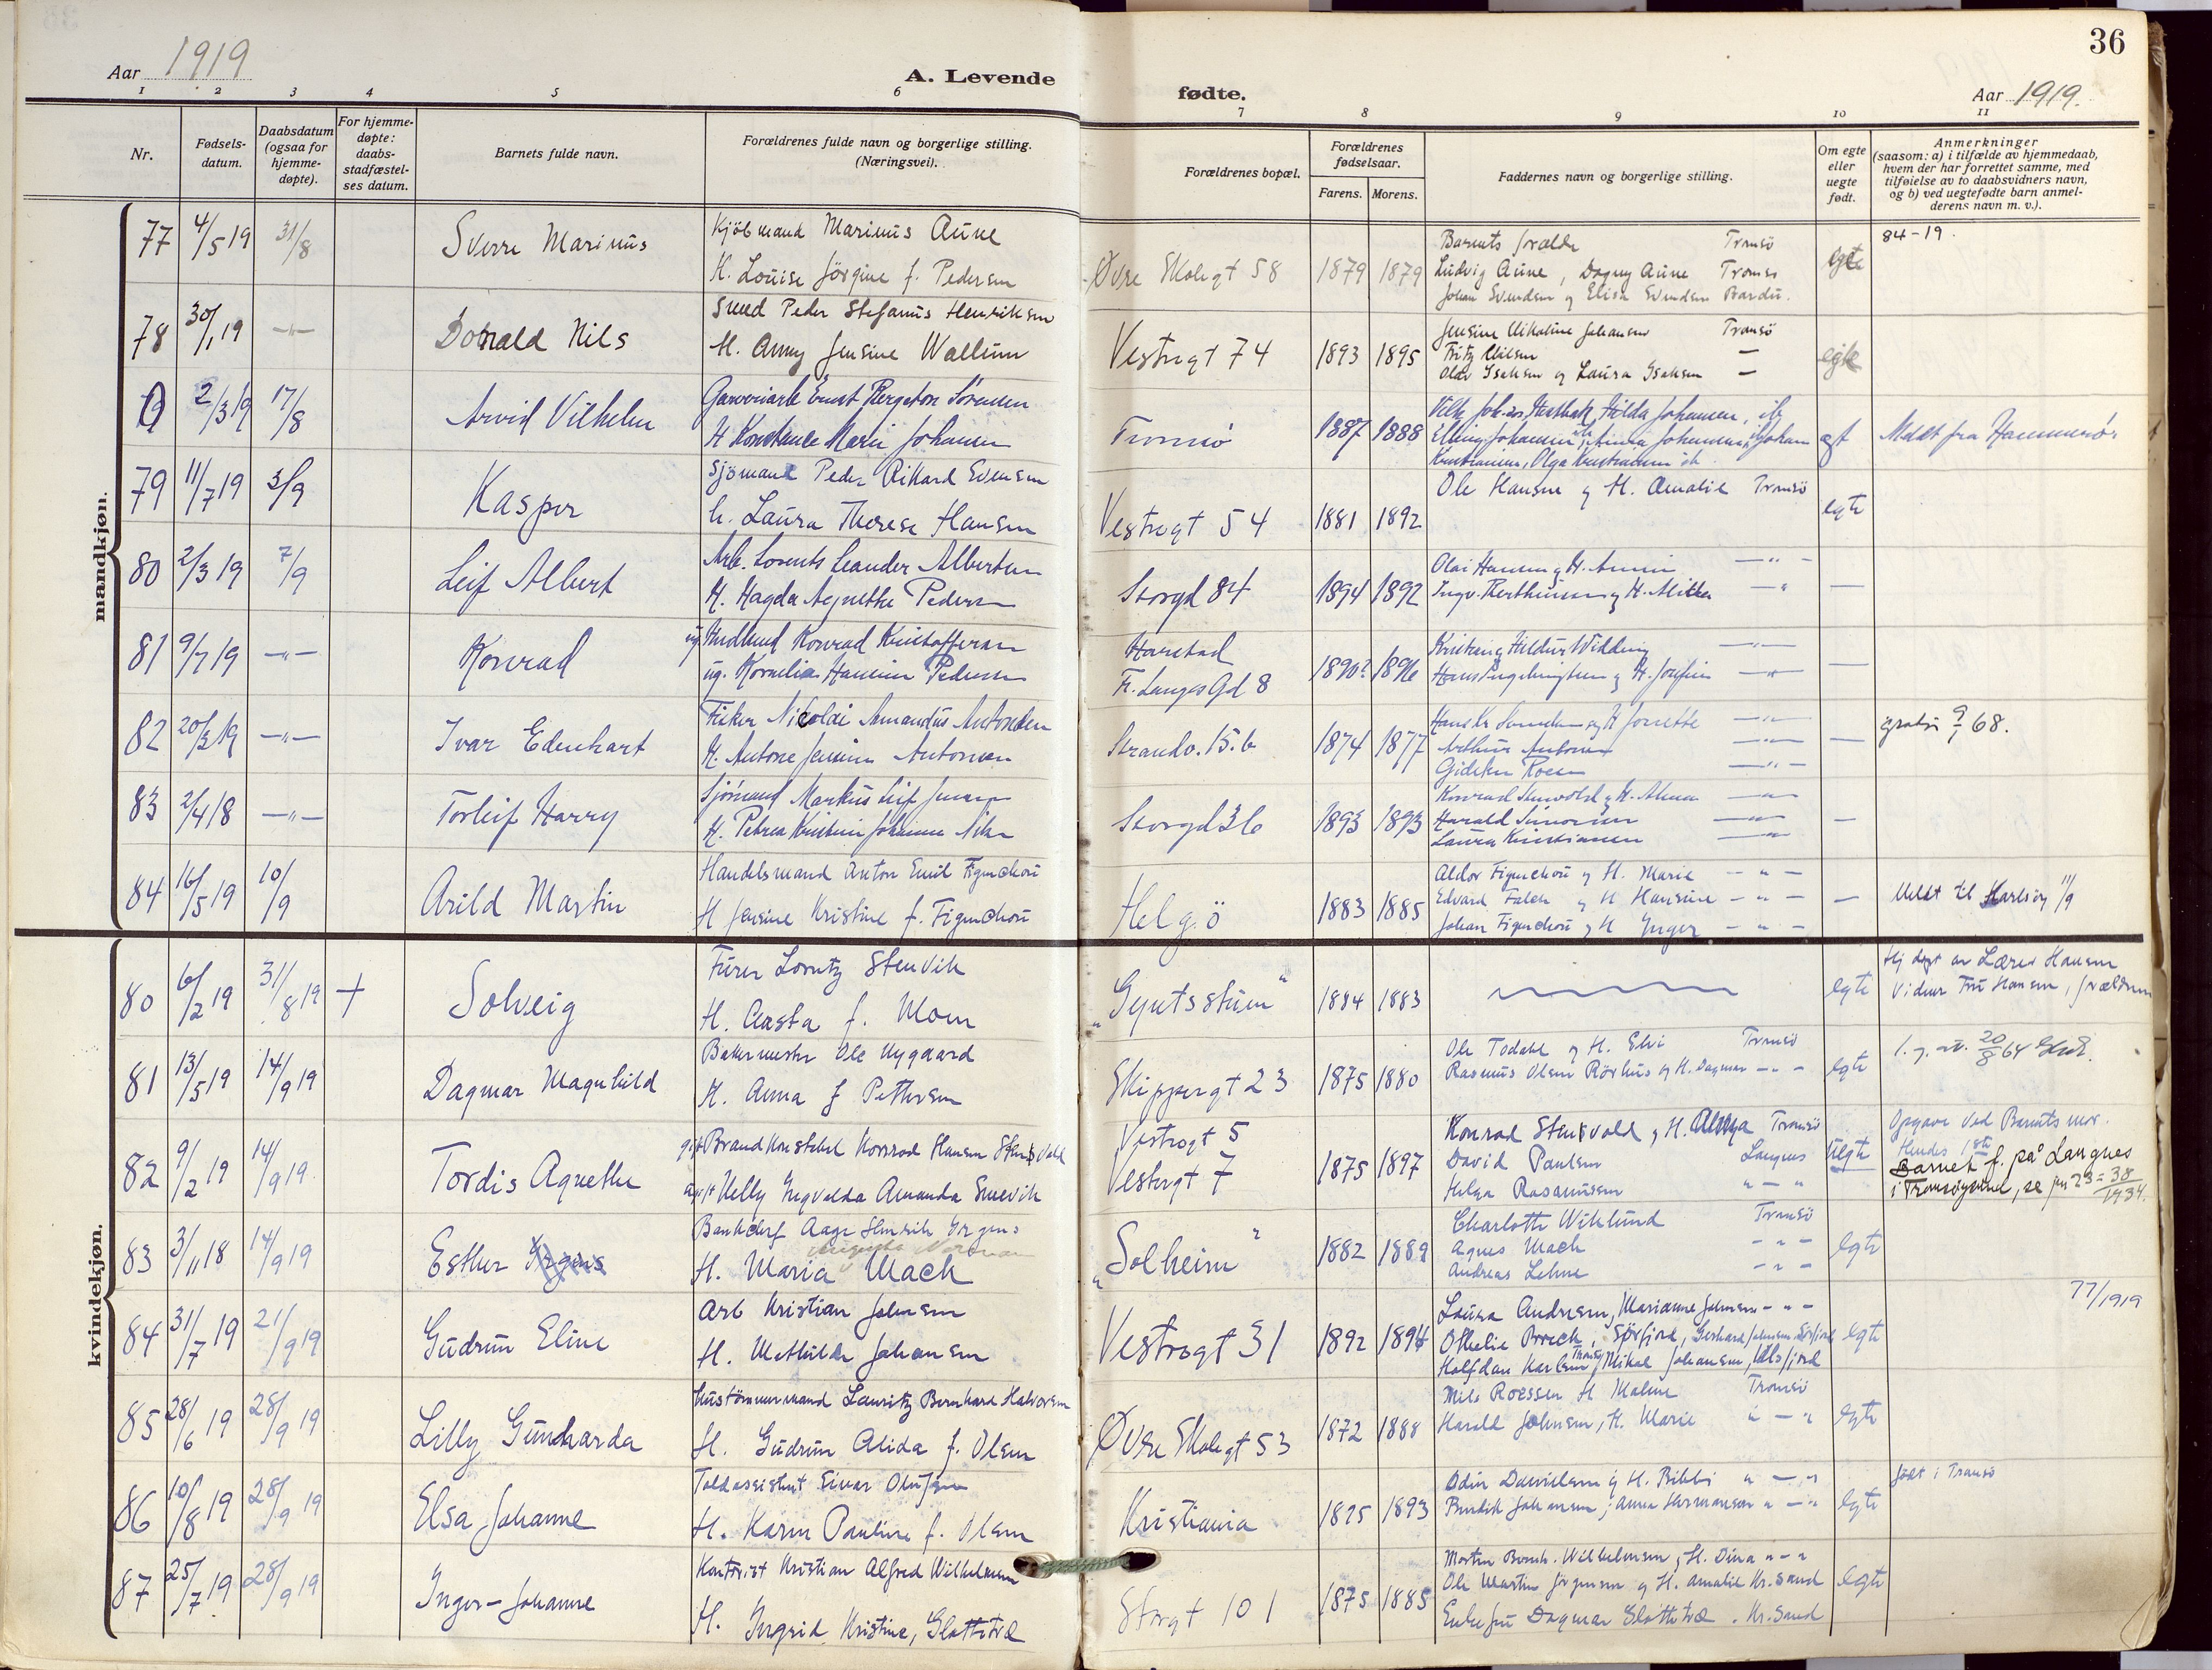 36
Aar 1919
A. Levende
fødte.
Aar 1919.
1 2 3 4 5 6 7 8 9 10 11
Nr.
Fødsels-
datum.
Daabsdatum
(ogsaa for
hjemme-
døpte).
For hjemme-
døpte:
daabs-
stadfæstel-
ses datum.
Barnets fulde navn.
Forældrenes fulde navn og borgerlige stilling.
(Næringsvei).
Forældrenes bopæl.
Forældrenes
fødselsaar.
Farens. Morens.
Faddernes navn og borgerlige stilling.
Om egte
eller
uegte
født.
Anmerkninger
(saasom: a) i tilfælde av hjemmedaab,
hvem der har forrettet samme, med
tilføielse av to daabsvidners navn,
og b) ved uegtefødte barn anmel-
derens navn m. v.).
mandkjøn.
77 4/5 19 31/8 Sverre Marinus
Kjöbmand Marinus Aune
H. Louise Jörgine f. Pedersen
Øvre Skolegt 58 1879 1879
Barnets forældre Tromsö
Ludvig Aune, Dagny Aune Tromsö
Johan Svendsen og Elisa Svendsen Bardu.
egte
84-19.
78 30/1 19 -"- Donald Nils
Smed Peder Stefanus Henriksen
H. Anny Jensine Wallum
Vestregt 74 1893 1895
Jensine Nikoline Johansen Tromsö
Fritz Nilsen —
Olav Isaksen og Laura Isaksen —
egte
2/3 19 17/8 Arvid Vilhelm
H Konstance Marie Johansen
Tromsö 1887 1888
Hilda Johansen,
egt
Meldt fra Hammerö
79 11/7 19 3/9 Kasper
Sjömand Peder Rikard Evensen
h. Laura Therese Hansen
Vestregt 54 1881 1892
Ole Hansen og H. Amalie Tromsö
egte
80 2/3 19 7/9 Leif Albert
Arb. Lorents Leander Albertsen
H. Magda Agnethe Pedersen
Storgd 84 1894 1892
Olai Hansen og H. -"-
—
81 9/7 19 -"- Konrad
Konrad Kristoffersen
ug. Kornelia Hansine Pedersen
Harstad
Fr. Langes Gd 8 1890? 1896
—
82 20/3 19 -"- Ivar Edenhart
Fisker Nicolai Amandus Antonsen
H. Antone Jensine Antonsen
Strandv. 15.b 1874 1877
Arthur Antonsen -"-
—
83 2/4 18 -"- Torleif Harry
Sjömand Markus Leif Jensen
Storgd 36 1893 1893
Harald Simonsen
Laura Kristiansen
—
84 16/5 19 10/9 Arild Martin
Handelsmand Anton Emil Figenschou
H Jensine Kristine f. Figenschou
Helgö 1883 1885
Aldor Figenschou og H. Marie - " -
Edvard Falch og H Hansine - " -
Johan Figenschou og H Inger - " -
—
Meldt til Karlsöy 11/9
kvindekjøn.
80 16/2 19 31/8 19 + Solveig
Furer Lorentz Stenvik
H. Aasta f. Moen
"Gyntsstuen" 1884 1883
egte
Hj döpt av Lærer Hansen
Vidner Fru Hansen, forældrene
81 13/5 19 14/9 19 Dagmar Magnhild
Bakermester Ole Nygaard
H. Anna f Pettersen
Skippergt 23 1875 1880
Ole Todahl og H. Elvi Tromsö
Rasmus Olsen Rörhus og H. Dagmar - " -
egte
82 9/2 19 14/9 19 Tordis Agnethe
gift Brandkonstabel Konrad Hansen Stenvold
ugift Nelly Ingvalda Amanda Snevik
Vestregt 5
Vestregt 7 1875 1897
Konrad Stenvold og H. Tromsö
David Paulsen Langnes
Helga Rasmussen " — "
uegte
Opgave ved Barnets mor.
Hendes 1ste
Barnet f. på Langnes
i Tromsöysund,
83 3/11 18 14/9 19 Esther
Aage Henrik Irgens
H. Maria Mack
"Solheim" 1882 1889
Charlotte Wiklund Tromsö
Agnes Mack - " -
Andreas Lehne - " -
egte
84 31/7 19 21/9 19 Gudrun Eline
Arb Kristian Johansen
H. Mathilde Johansen
Vestregt 31 1892 1894
Laura Andresen, Marianne Johansen - " -
Halfdan Karlsen Tromsö, Mikal Johansen, Ulvsfjord
egte
77/1919
85 28/6 19 28/9 19 Lilly Gunharda
Hustömmermand Lauritz Bernhard Halvorsen
H. Gudrun Alida f. Olsen
Øvre Skolegt 53 1872 1888
Nils Roessen H Maline Tromsö
Harald Johnsen, H. Marie " — "
egte
86 10/8 19 28/9 19 Elsa Johanne
Toldassistent Einar Olufsen
H. Karen Pauline f. Olsen
Kristiania 1893
Odin Danielsen og H. Bibbi " — "
Johansen, Anna Hermansen " — "
egte
födt i Tromsö
87 25/7 19 28/9 19 Inger-Johanne
Kontorist Kristian Alfred Wilhelmsen
H. Ingrid Kristine, Slottetræ
Storgt 101 1875 1885
Morten Bernh. Wilhelmsen og H. Dina " — "
Ole Martin Jörgensen og H. Amalie Kr. Sand
Enkefru Dagmar Slottetræ . Kr. Sand
egte